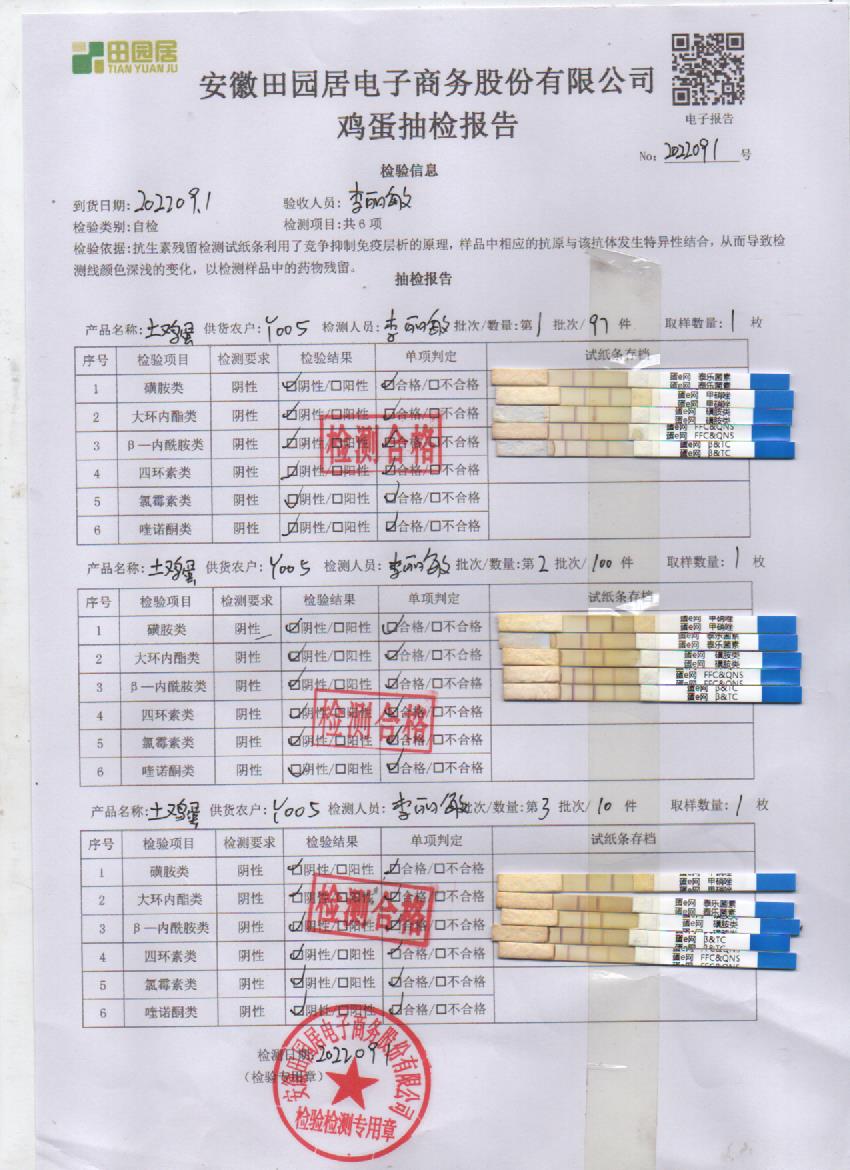 田园居
TIAN YUAN JU
安徽田园居电子商务股份有限公司
鸡蛋抽检报告
电子报告
No: 2022091 号
检验信息
到货日期: 202209.1 验收人员: 李丽敏
检验类别:自检 检测项目:共6项
检验依据:抗生素残留检测试纸条利用了竞争抑制免疫层析的原理，样品中相应的抗原与该抗体发生特异性结合，从而导致检
测线颜色深浅的变化，以检测样品中的药物残留。
抽检报告
产品名称: 土鸡蛋 供货农户: Y005 检测人员: 李丽敏 批次/数量:第 1 批次/ 97 件 取样数量: 1 枚
序号 检验项目 检测要求 检验结果 单项判定 试纸条存档
1 磺胺类 阴性 ☑阴性/□阳性 ☑合格/□不合格
2 大环内酯类 阴性 ☑阴性/□阳性 ☑合格/□不合格
3 β—内酰胺类 阴性 ☑阴性/□阳性 ☑合格/□不合格
4 四环素类 阴性 ☑阴性/□阳性 ☑合格/□不合格
5 氯霉素类 阴性 ☑阴性/□阳性 ☑合格/□不合格
6 喹诺酮类 阴性 ☑阴性/□阳性 ☑合格/□不合格
检测合格
蛋e网 泰乐菌素
蛋e网 泰乐菌素
蛋e网 甲硝唑
蛋e网 甲硝唑
蛋e网 磺胺类
蛋e网 磺胺类
蛋e网 FFC&QNS
蛋e网 FFC&QNS
蛋e网 β&TC
蛋e网 β&TC
产品名称: 土鸡蛋 供货农户: Y005 检测人员: 李丽敏 批次/数量:第 2 批次/ 100 件 取样数量: 1 枚
序号 检验项目 检测要求 检验结果 单项判定 试纸条存档
1 磺胺类 阴性 ☑阴性/□阳性 ☑合格/□不合格
2 大环内酯类 阴性 ☑阴性/□阳性 ☑合格/□不合格
3 β—内酰胺类 阴性 ☑阴性/□阳性 ☑合格/□不合格
4 四环素类 阴性 ☑阴性/□阳性 ☑合格/□不合格
5 氯霉素类 阴性 ☑阴性/□阳性 ☑合格/□不合格
6 喹诺酮类 阴性 ☑阴性/□阳性 ☑合格/□不合格
检测合格
蛋e网 甲硝唑
蛋e网 甲硝唑
蛋e网 泰乐菌素
蛋e网 泰乐菌素
蛋e网 磺胺类
蛋e网 磺胺类
蛋e网 FFC&QNS
蛋e网 FFC&QNS
蛋e网 β&TC
蛋e网 β&TC
产品名称: 土鸡蛋 供货农户: Y005 检测人员: 李丽敏 批次/数量:第 3 批次/ 10 件 取样数量: 1 枚
序号 检验项目 检测要求 检验结果 单项判定 试纸条存档
1 磺胺类 阴性 ☑阴性/□阳性 ☑合格/□不合格
2 大环内酯类 阴性 ☑阴性/□阳性 ☑合格/□不合格
3 β—内酰胺类 阴性 ☑阴性/□阳性 ☑合格/□不合格
4 四环素类 阴性 ☑阴性/□阳性 ☑合格/□不合格
5 氯霉素类 阴性 ☑阴性/□阳性 ☑合格/□不合格
6 喹诺酮类 阴性 ☑阴性/□阳性 ☑合格/□不合格
检测合格
蛋e网 甲硝唑
蛋e网 泰乐菌素
蛋e网 泰乐菌素
蛋e网 磺胺类
蛋e网 β&TC
蛋e网 β&TC
蛋e网 FFC&QNS
蛋e网 FFC&QNS
检测日期: 2022091
（检验专用章）
安徽田园居电子商务股份有限公司
检验检测专用章